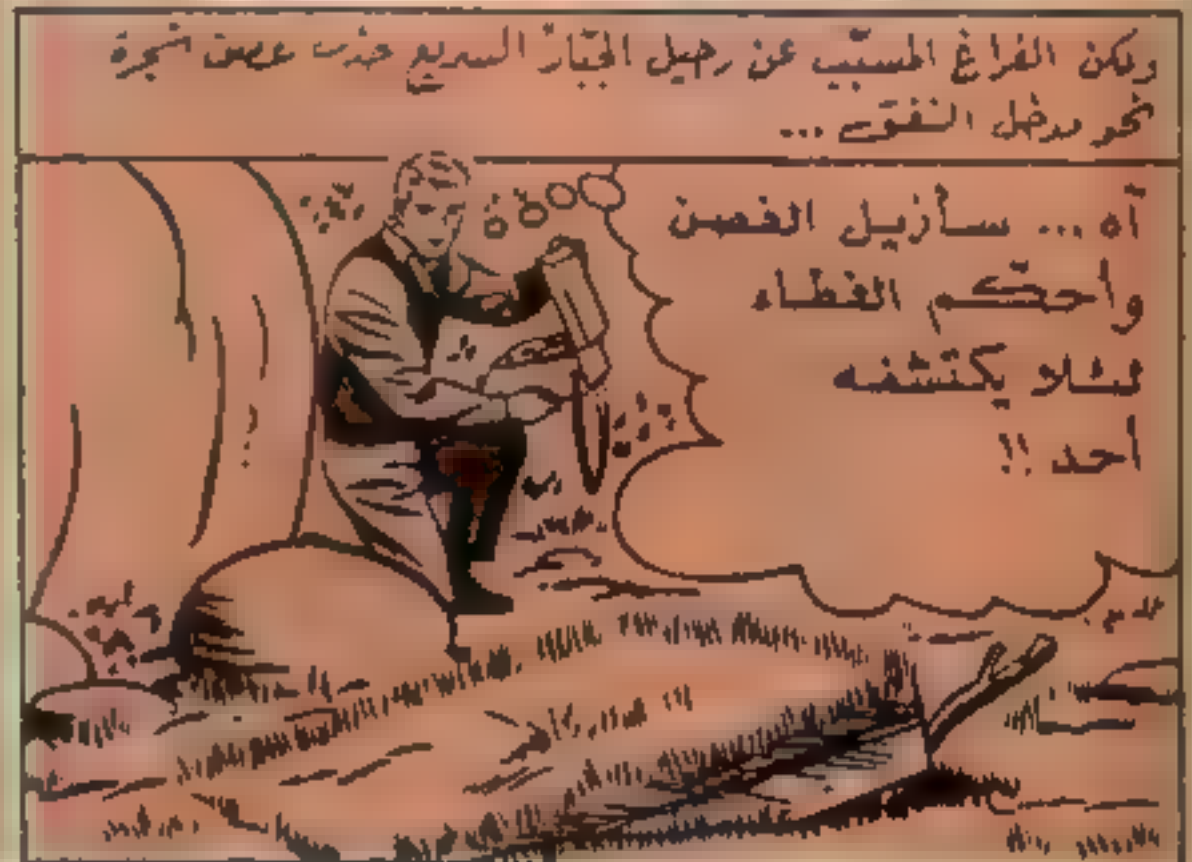 ولكن الفراغ المسبّب عن رحيل الجبّار السريع جذب غصن شجرة
نحو مدخل النفق ...
آه ... سأزيل الغصن
وأحكّم الغطاء
لئلا يكتشفه
أحد !!